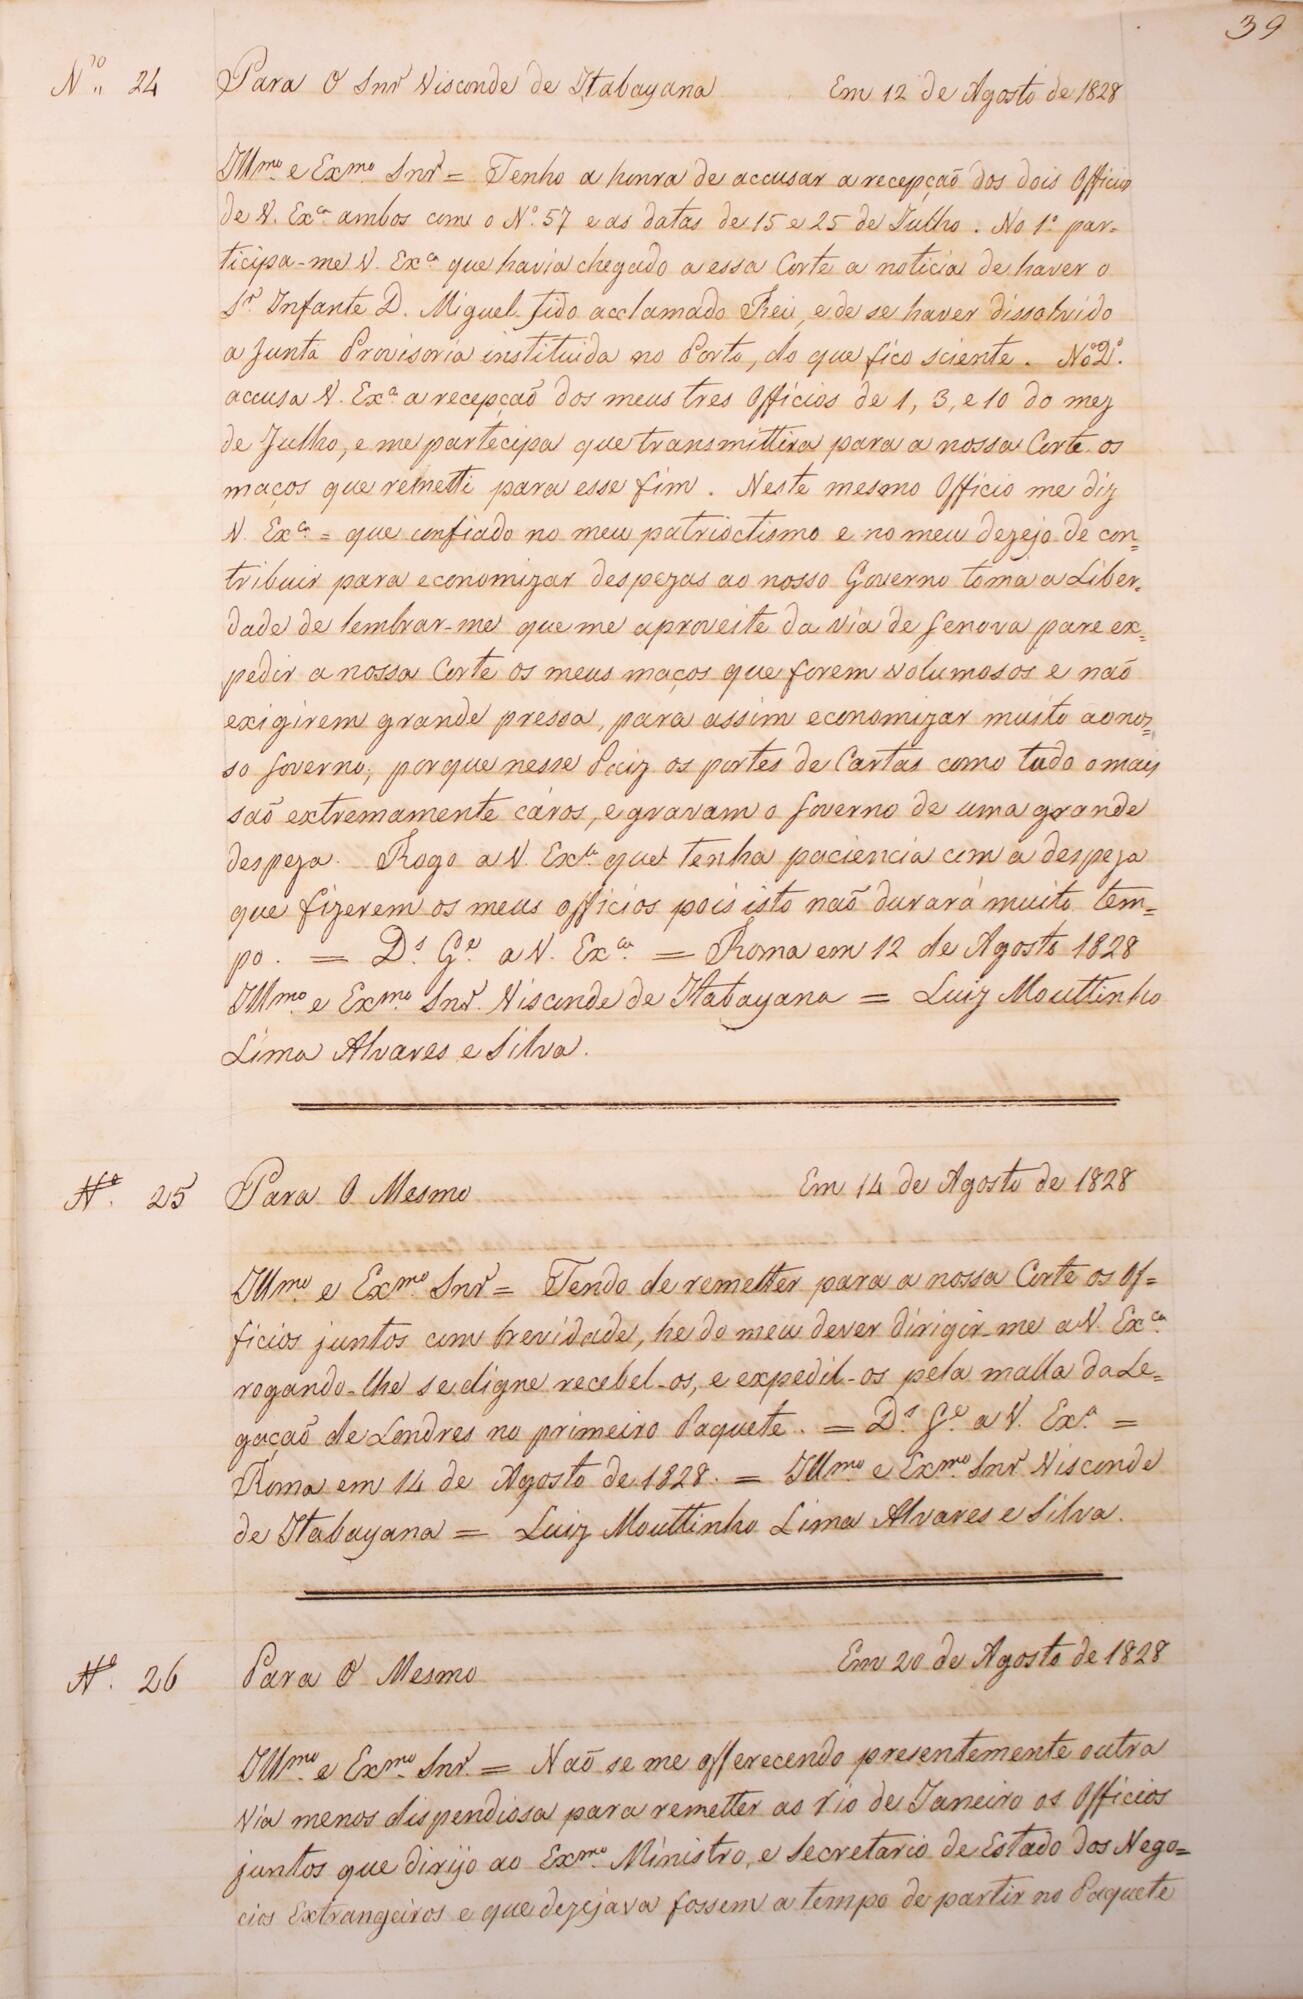 39
Nº 24 Para O Snr Visconde de Itabayana Em 12 de Agosto de 1828
Illmo e Exmo Snr = Tenho a honra de accusar a recepçaõ dos dois Officios
de V. Exca ambos com o Nº. 57 e as datas de 15 e 25 de Julho. No 1º par-
ticipa-me V. Exca que havia chegado a essa Corte a noticia de haver o
Sr Infante D. Miguel sido acclamado Rei, e de se haver dissolvido
a Junta Provisoria instituida no Porto, do que fico sciente. No 2º.
accusa V. Exca a recepçaõ dos meus tres Officios de 1, 3, e 10 do mez
de Julho, e me partecipa que transmittira para a nossa Corte os
maços que remetti para esse fim. Neste mesmo Officio me diz
V. Exca = que confiado no meu patrioctismo e no meu dezejo de con=
tribuir para economizar despezas ao nosso Governo toma a Liber=
dade de lembrar-me que me aproveite da via de Genova pare ex=
pedir a nossa Corte os meus maços que forem volumosos e naõ
exigirem grande pressa, para assim economizar muito ao nos=
so Governo, porque nesse Paiz os portes de Cartas como tudo o mais
saõ extremamente cáros, e gravam o Governo de uma grande
despeza. Rogo a V. Exca que tenha paciencia com a despeza
que fizerem os meus officios pois isto naõ durará muito tem=
po. = Ds. Ge. a V. Exca = Roma em 12 de Agosto 1828
Illmo e Exmo Snr. Visconde de Itabayana = Luiz Mouttinho
Lima Alvares e Silva.
Nº. 25 Para O Mesmo Em 14 de Agosto de 1828
Illmo e Exmo Snr = Tendo de remetter para a nossa Corte os Of=
ficios juntos com brevidade, he do meu dever dirigir-me a V. Exca
rogando-lhe se digne recebel-os, e expedil-os pela malla da Le=
gaçaõ de Londres no primeiro Paquete. = Ds Ge. a V. Exa =
Roma em 14 de Agosto de 1828. = Illmo e Exmo Snr Visconde
de Itabayana = Luiz Mouttinho Lima Alvares e Silva.
Nº. 26 Para O Mesmo Em 20 de Agosto de 1828
Illmo e Exmo Snr. = Naõ se me offerecendo presentemente outra
via menos dispendiosa para remetter ao rio de Janeiro os Officios
juntos que dirijo ao Exmo Ministro, e Secretario de Estado dos Nego=
cios Extrangeiros e que dezejava fossem a tempo de partir no Paquete